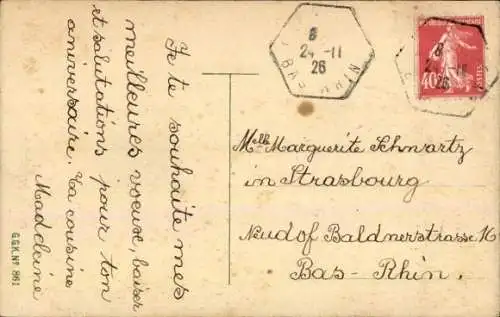 Je te souhaite mes
meilleures voeux, baiser
et salutations pour ton
aniversaire. Ta cousine
Madeleine
G.G.K. Nº 861
8
24 -11
26
BAS RHIN
8
26
40
POSTES
Melle Marguerite Schwartz
in Strasbourg
Neudof Baldnerstrasse
Bas-Rhin.